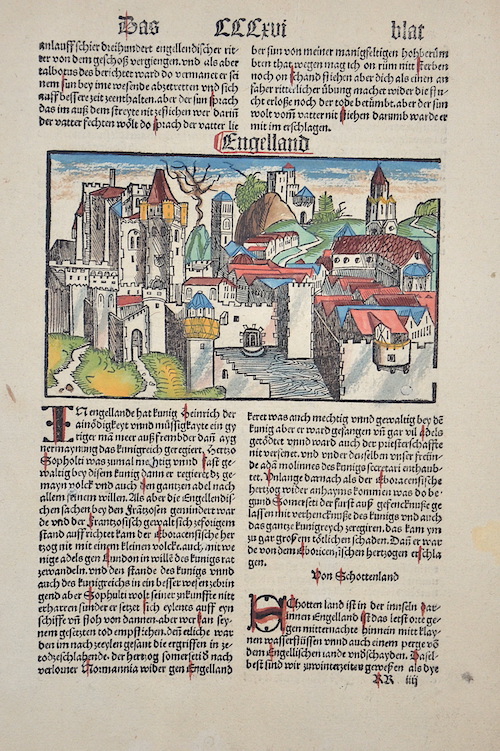 Das CCCxvi blat
anlauff schier dreihundert engellendischer rit
ter von dem geschoß vergiengen. vnd als aber
talbotus des berichtet ward do vermanet er sei
nem sun bey ime wesende abzetretten vnd sich
auff bessere zeit zeenthalten. aber der sun sprach
das im auß dem streyte nit zeflihen wer darinn
der vatter fechten wölt do sprach der vatter lie
ber sun von meiner manigfeltigen hohberům
bten that wegen mag ich on rům nit sterben
noch on schand fliehen aber dich als einen an
faher ritterlicher übung machet wider die flu
cht erloße noch der tode berůmbt. aber der sun
wolt vom vatter nit fliehen darumb warde er
mit im erschlagen.
Engelland
IN engellande hat kunig Heinrich der
ainödigkeyt vnnd müssigkayte ein gy
riger mā meer auß frembder dann ayg
ner maynung das kunigreich geregiret. Hertzo
Sopholti was zumal mechtig vnnd fast ge
waltig bey disem kunig dann er regieret dz ge
mayn volck vnd auch den gantzen adel nach
allem seinem willen. Als aber die Engellendi
schen sachen bey den Frāzosen gemindert war
de vnd der Frantzosisch gewalt sich zeforigem
stand auffrichtet kam der Eboracensische her
tzog nit mit eim kleinen volcke auch mit we
nige adels gen Lundon in wills des kunigs rat
zewandeln. vnd den stande des kunigs vnnd
auch des kunigreichs in ein besser wesen zebrin
gend aber Sophulti wolt seiner zukunffte nit
erharren sunder er setzet sich eylents auff eyn
schiffe vñ floh von dannen. aber wer kan sey
nem gesetzten tod empfliehen. den eetliche war
den im nachzeylen gesant die ergriffen in ze
tod zeschlahende. der hertzog somerseti d nach
verlorner Normannia wider gen Engelland
keret was auch mechtig vnnd gewaltig bey dē
kunig aber er ward gefangen vñ gar vil adels
getödtet vnnd ward auch der priesterschaffte
nit verschonet. vnd vnder denselben vnser freün
de adā molinnes des kunigs secretari enthaub
tet. Vnlange darnach als der Eboracensische
hertzog wider anhayms kommen was do be
gund Somerseti der fürst auß gefencknuße ge
lassen mit verhencknuße des kunigs vnd auch
das gantze kunigreych zeregiren. das kam ym
zu gar großem tötlichen schaden. Dañ er war
de von dem Eboricensischen hertzogen erschla
gen.
Von Schottenland
SChotten land ist in der innseln dar
innen Engelland ist das letst ort ge
gen mitternachte hinnein mitt klay
nen wasserflüssen vnnd auch einem perge võ
dem Engellischen lande vndschayden. Dasel
best sind wir zu winterzeiten gewesen als dye
RR iiij